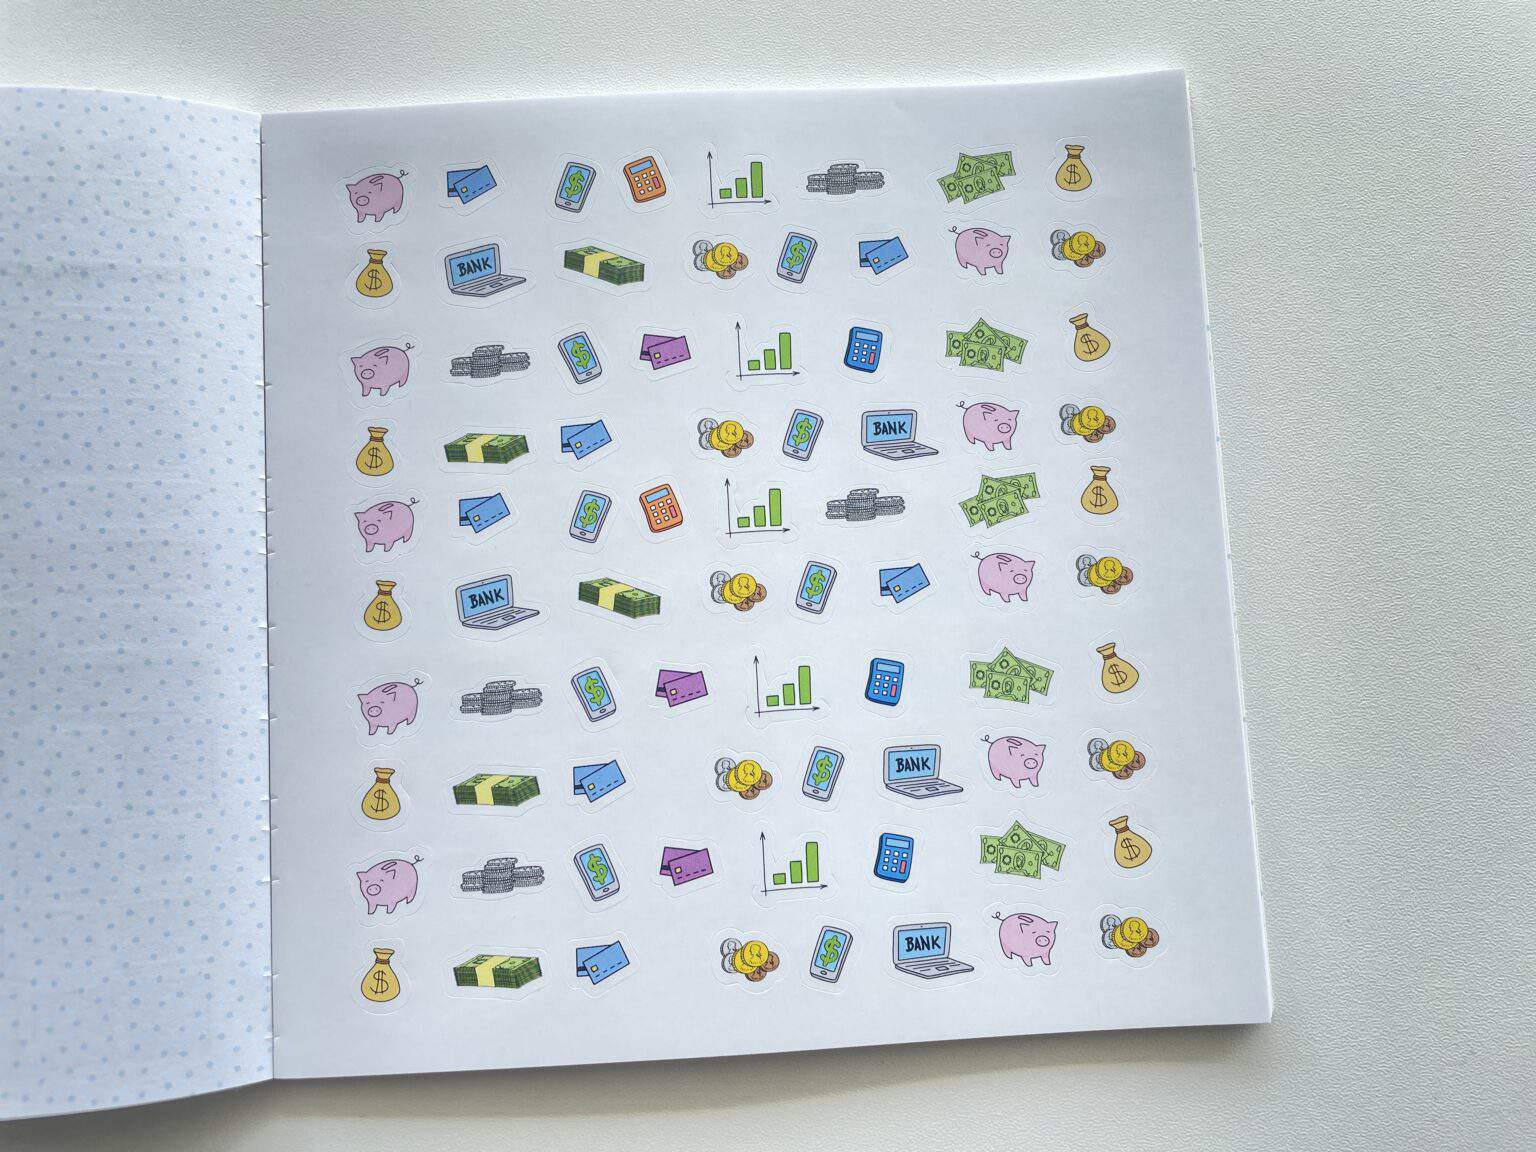 $ $
$ BANK $
$ $
$ $ BANK
$ $
$ BANK $
$ $
$ $ BANK
$ $
$ $ BANK